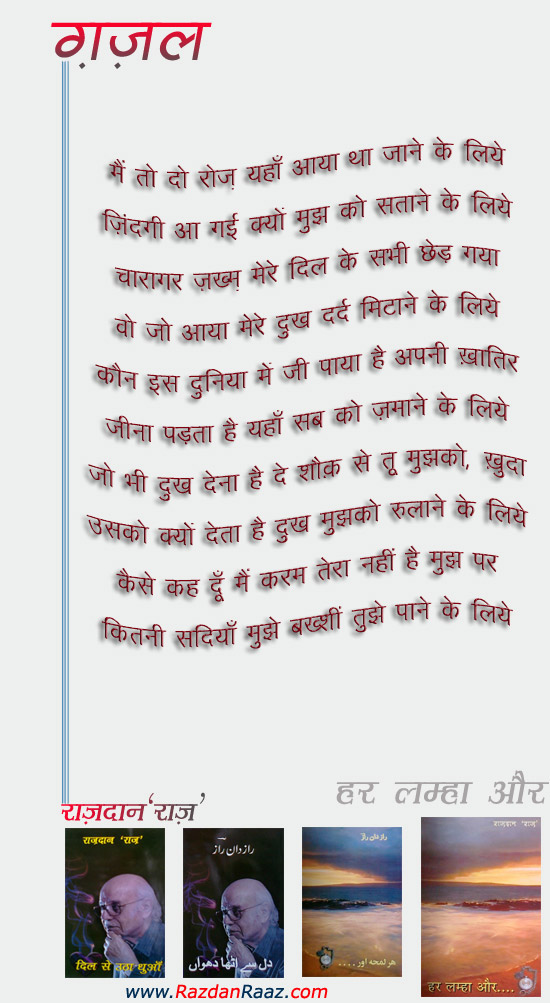 ग़ज़ल
मैं तो दो रोज़ यहाँ आया था जाने के लिये
ज़िंदगी आ गई क्यों मुझ को सताने के लिये
चारागर ज़ख़्म मेरे दिल के सभी छेड़ गया
वो जो आया मेरे दुख दर्द मिटाने के लिये
कौन इस दुनिया में जी पाया है अपनी ख़ातिर
जीना पड़ता है यहाँ सब को ज़माने के लिये
जो भी दुख देना है दे शौक़ से तू मुझको, ख़ुदा
उसको क्यों देता है दुख मुझको रुलाने के लिये
कैसे कह दूँ मैं करम तेरा नहीं है मुझ पर
कितनी सदियाँ मुझे बख्शीं तुझे पाने के लिये
हर लम्हा और
राज़दान ‘राज़’
राज़दान ‘राज़’
دل سے اٹھا دھواں
رازدان راز
दिल से उठा धुआँ
رازدان راز
ھر لمحہ اور....
राज़दान ‘राज़’
हर लम्हा और....
www.RazdanRaaz.com